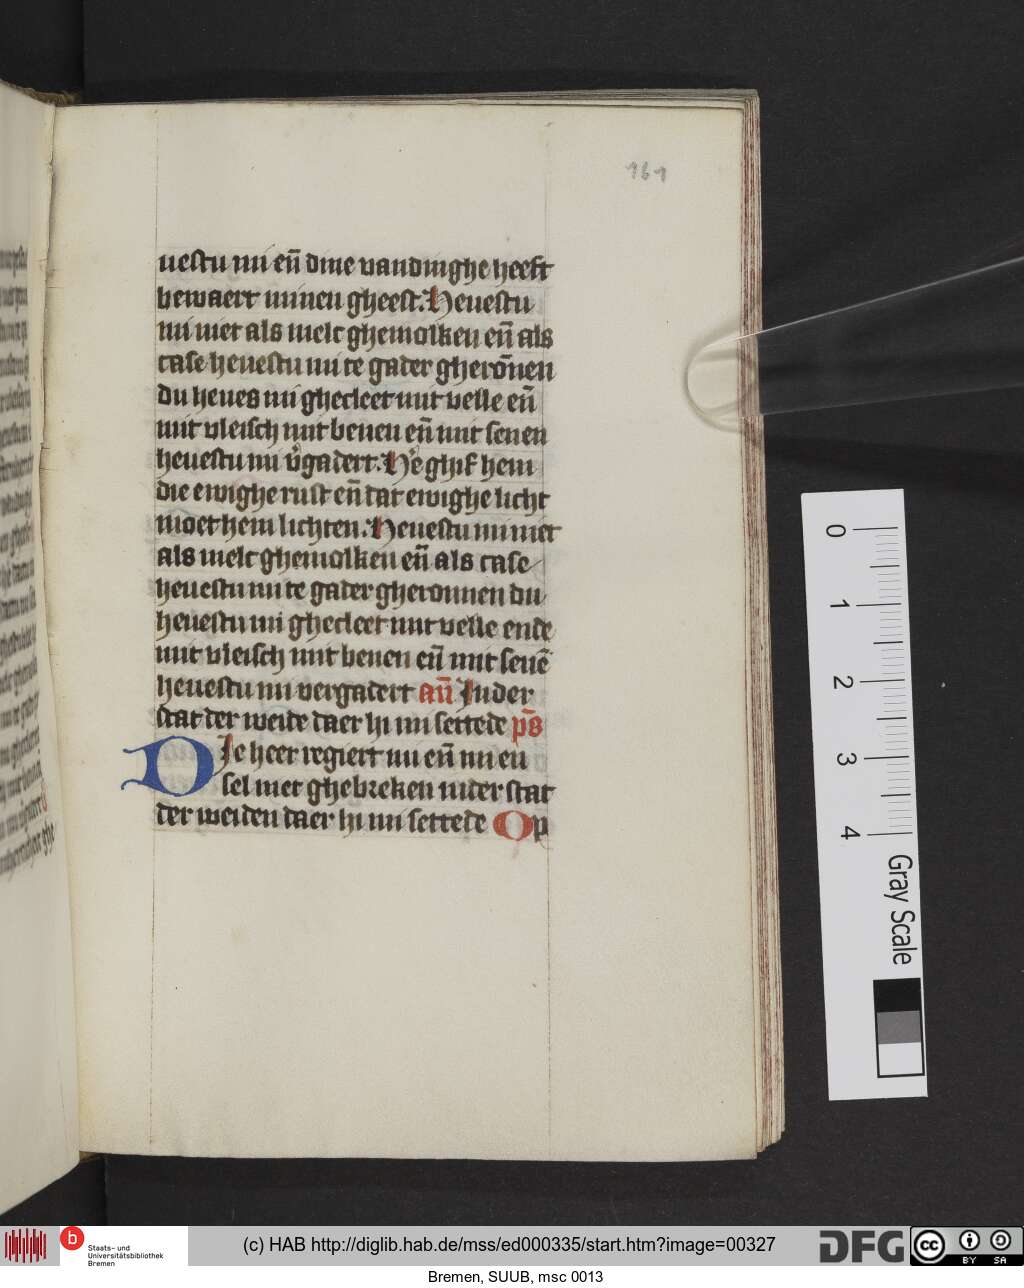 161
uestu mi en̄ dine vandinghe heeft
bewaert minen gheest. Heuestu
mi niet als melc ghemolken en̄ als
case heuestu mi te gader gherōnen
du heues mi ghecleet mit velle en̄
mit vleisch mit benen en̄ mit senen
heuestu mi v̉gadert. He͛ ghif hem
die ewighe rust en̄ dat ewighe licht
moet hem lichten. Heuestu mi niet
als melc ghemolken en̄ als case
heuestu mi te gader gheronnen du
heuestu mi ghecleet mit velle ende
mit vleisch mit benen en̄ mit senē
heuestu mi vergadert an̄ Inder
stat der weide daer hi mi settede p̄s
DIe heer regiert mi en̄ mi en
sel niet ghebreken inder stat
der weiden daer hi mi settede Op
0
1
2
3
4
Gray Scale
b
Staats- und
Universitätsbibliothek
Bremen
(c) HAB http://diglib.hab.de/mss/ed000335/start.htm?image=00327
DFG
cc
BY SA
Bremen, SUUB, msc 0013